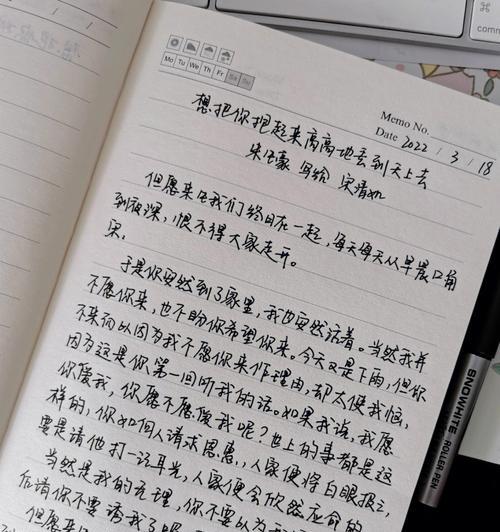 comm
Mo Tu We Th Fr Sa Su
Memo No.
Date 2022 / 3 / 18
想把你抱起来高高地丢到天上去
朱生豪 写给 宋清如
但愿来生我们终日在一起，每天每天从早晨口角
到夜深，恨不得大家走开。
宋：
于是你安然到了家里，我也安然活着。当然我并
不愿你来，也不盼你希望你来。今天又是下雨，但你
不来而以因为我不愿你来作理由，却太使我恼，
因为这是你第一回听我的话。如果我说，我愿
你爱我，你愿不愿爱我呢？世上的事都是这
样的，你如向人请求恩惠，人家便将白眼报之，
要是请他打一记耳光，人家便会欣然应命的
当然是我的无理，你不要以为我
后请你不要诱我了吧
但愿来
SNOWHITE ROLLER PEN